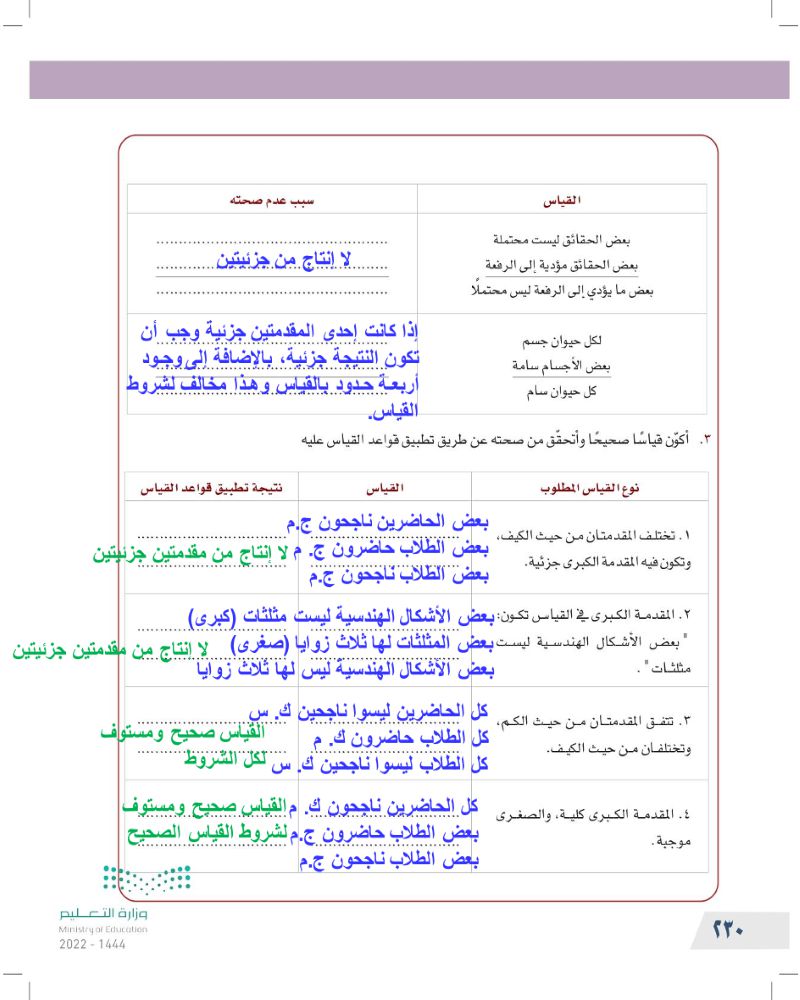 القياس
سبب عدم صحته
بعض الحقائق ليست محتملة
بعض الحقائق مؤدية إلى الرفعة
بعض ما يؤدي إلى الرفعة ليس محتملًا
لا إنتاج من جزئيتين
لكل حيوان جسم
بعض الأجسام سامة
كل حيوان سام
إذا كانت إحدى المقدمتين جزئية وجب أن
تكون النتيجة جزئية، بالإضافة إلى وجود
أربعة حدود بالقياس وهذا مخالف لشروط
القياس.
٣. أكوّن قياسًا صحيحًا وأتحقّق من صحته عن طريق تطبيق قواعد القياس عليه
نوع القياس المطلوب
القياس
نتيجة تطبيق قواعد القياس
١. تختلف المقدمتان من حيث الكيف،
وتكون فيه المقدمة الكبرى جزئية.
بعض الحاضرين ناجحون ج.م
بعض الطلاب حاضرون ج. م
بعض الطلاب ناجحون ج.م
لا إنتاج من مقدمتين جزئيتين
٢. المقدمة الكبرى في القياس تكون:
"بعض الأشكال الهندسية ليست
مثلثات".
بعض الأشكال الهندسية ليست مثلثات (كبرى)
بعض المثلثات لها ثلاث زوايا (صغرى)
بعض الأشكال الهندسية ليس لها ثلاث زوايا
لا إنتاج من مقدمتين جزئيتين
٣. تتفق المقدمتان من حيث الكم،
وتختلفان من حيث الكيف.
كل الحاضرين ليسوا ناجحين ك. س
كل الطلاب حاضرون ك. م
كل الطلاب ليسوا ناجحين ك. س
القياس صحيح ومستوف
لكل الشروط
٤. المقدمة الكبرى كلية، والصغرى
موجبة.
كل الحاضرين ناجحون ك. م
بعض الطلاب حاضرون ج.م
بعض الطلاب ناجحون ج.م
القياس صحيح ومستوف
لشروط القياس الصحيح
وزارة التعليم
Ministry of Education
2022 - 1444
٢٣٠